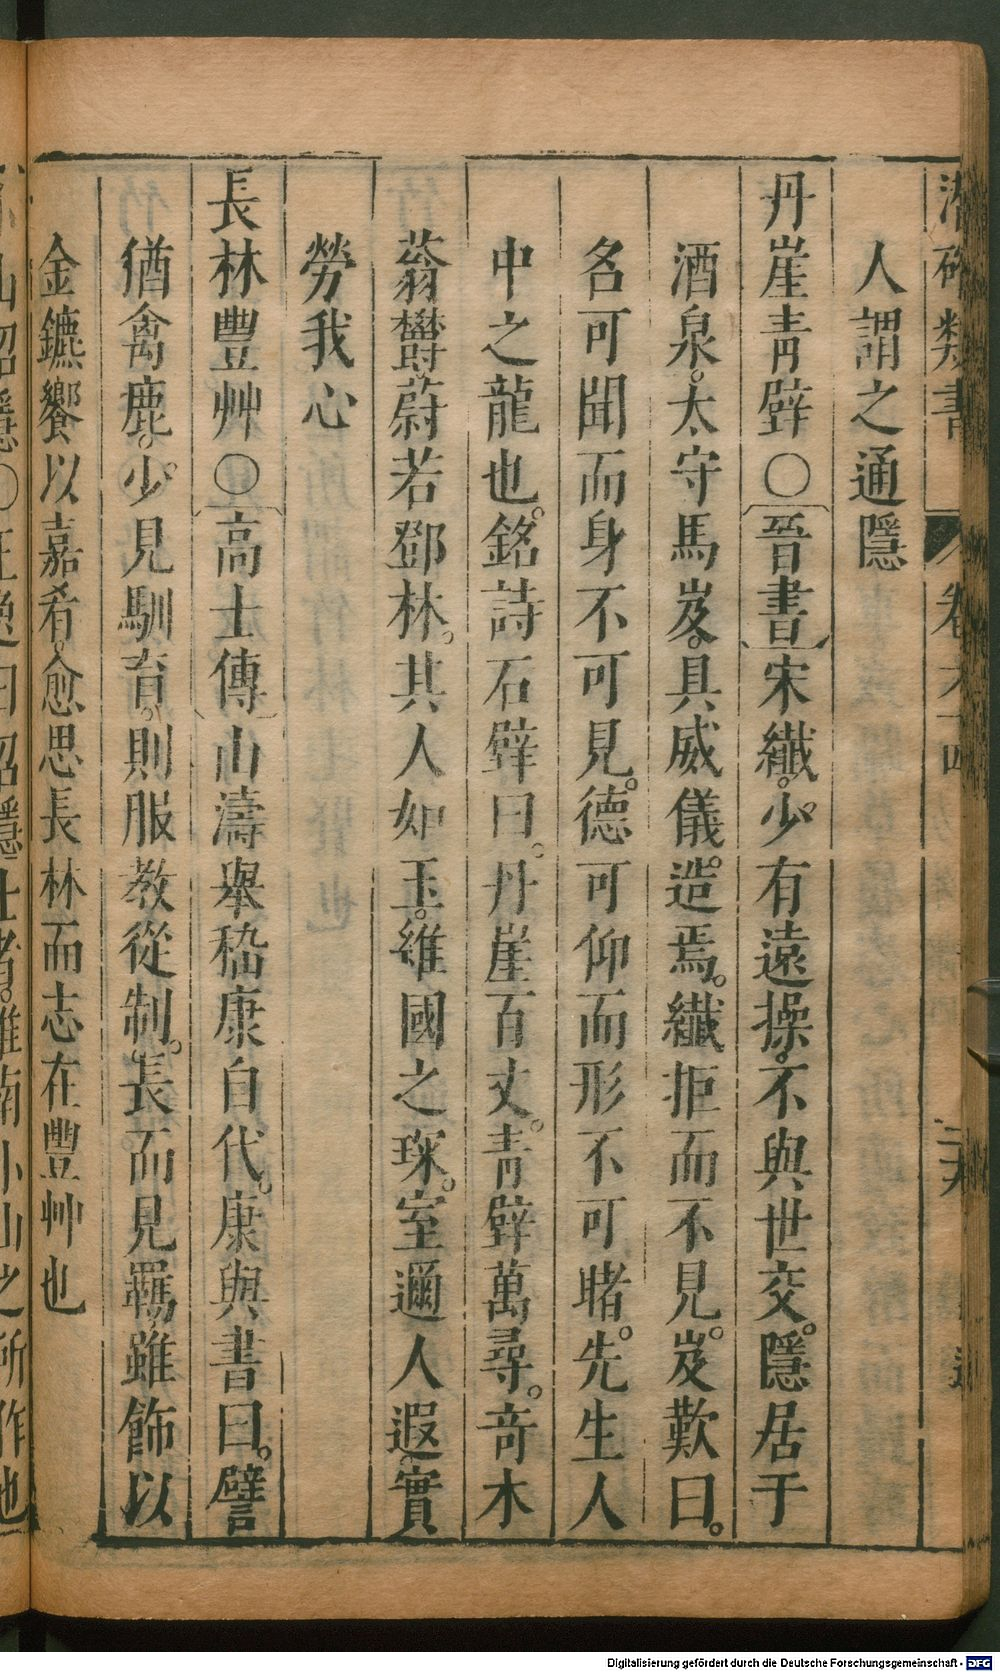 潛確類書 卷六十四 二十八
人謂之通隱
丹崖青壁○晉書宋纖。少有遠操。不與世交。隱居于
酒泉。太守馬岌。具威儀。造焉。纖拒而不見。岌歎曰。
名可聞而身不可見。德可仰而形不可睹。先生人
中之龍也。銘詩石壁曰。丹崖百丈。青壁萬尋。奇木
蓊欝。蔚若鄧林。其人如玉。維國之琛。室邇人遐。實
勞我心
長林豐艸○高士傳山濤舉嵇康自代。康與書曰。譬
猶禽鹿。少見馴育。則服教從制。長而見羈。雖飾以
金鑣饗以嘉肴。愈思長林而志在豐艸也
小山招隱○王逸曰招隱士者。淮南小山之所作也
Digitalisierung gefördert durch die Deutsche Forschungsgemeinschaft - DFG